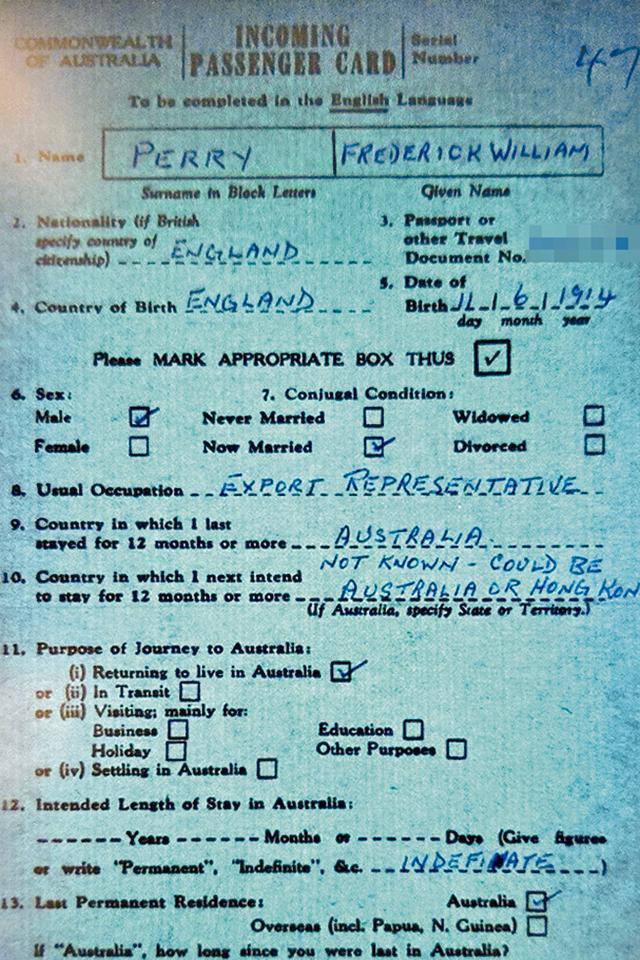 COMMONWEALTH OF AUSTRALIA
INCOMING PASSENGER CARD
Serial Number
47
To be completed in the English Language
1. Name PERRY FREDERICK WILLIAM
Surname in Block Letters Given Name
2. Nationality (if British specify country of citizenship) ENGLAND
3. Passport or other Travel Document No.
4. Country of Birth ENGLAND
5. Date of Birth 11 6 1914
day month year
Please MARK APPROPRIATE BOX THUS ✓
6. Sex: 7. Conjugal Condition:
Male ✓ Never Married Widowed
Female Now Married ✓ Divorced
8. Usual Occupation EXPORT REPRESENTATIVE
9. Country in which I last
stayed for 12 months or more AUSTRALIA.
NOT KNOWN - COULD BE
10. Country in which I next intend
to stay for 12 months or more AUSTRALIA OR HONG KON
(If Australia, specify State or Territory.)
11. Purpose of Journey to Australia:
(i) Returning to live in Australia ✓
or (ii) In Transit
or (iii) Visiting; mainly for:
Business Education
Holiday Other Purposes
or (iv) Settling in Australia
12. Intended Length of Stay in Australia:
Years Months or Days (Give figures
or write "Permanent", "Indefinite", &c. INDEFINATE)
13. Last Permanent Residence: Australia ✓
Overseas (incl. Papua, N. Guinea)
If "Australia", how long since you were last in Australia?